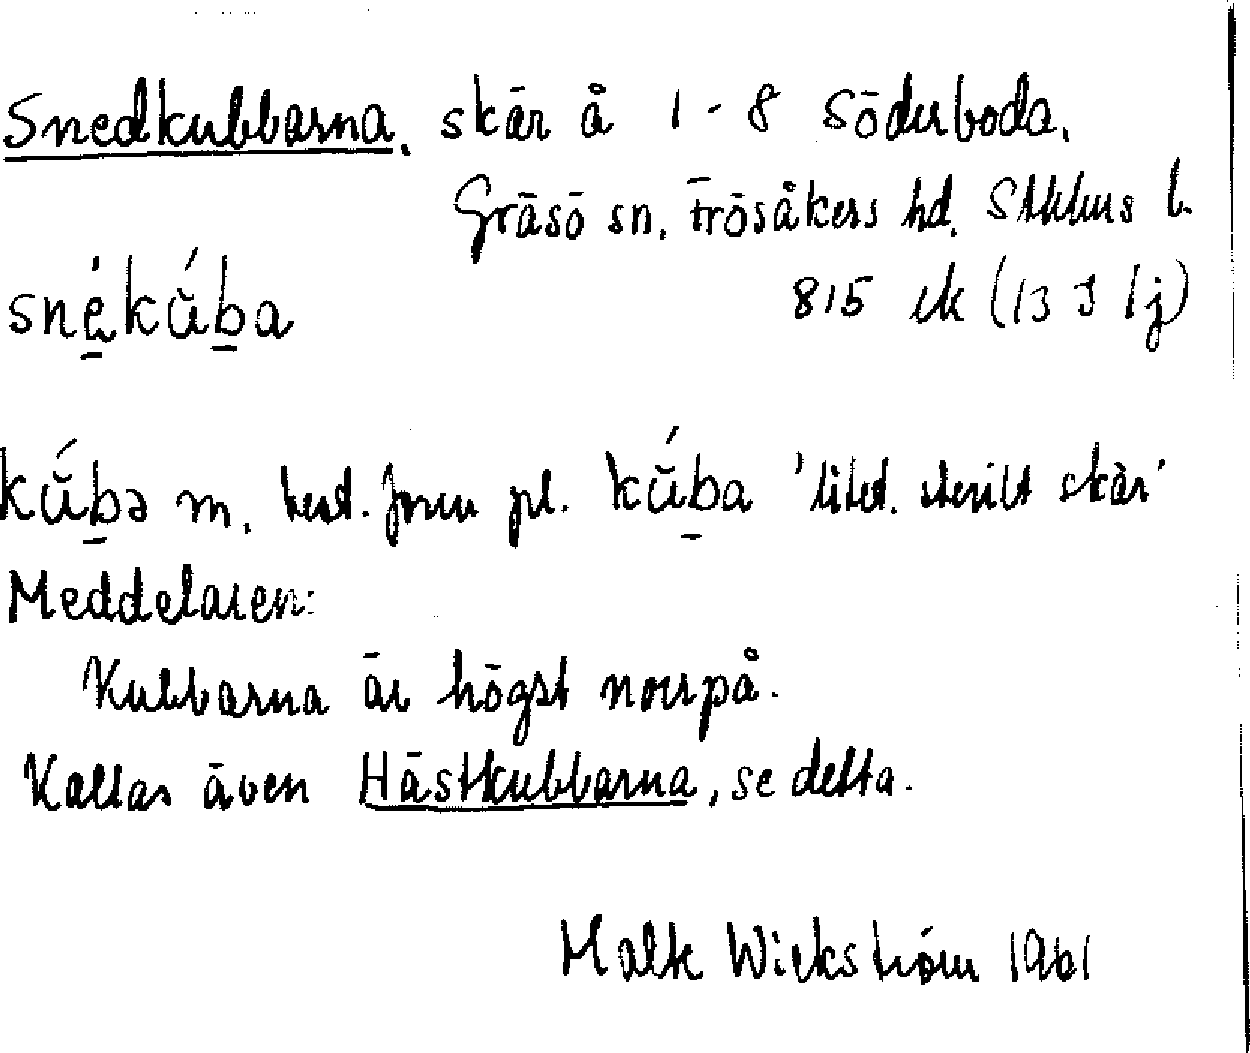 Snedkubbarna, skär å 1-8 Söderboda,
Gräsö sn, Frösåkers hd, Stkhms l.
snė̱kŭ́ḇa 815 ek (13 I 1j)
kŭ́ḇə m, best. form pl. kŭ́ḇa 'litet, sterilt skär'
Meddelaren:
Kubbarna är högst norrpå.
Kallas även Hästkubbarna, se detta.
Malk Wickström 1961